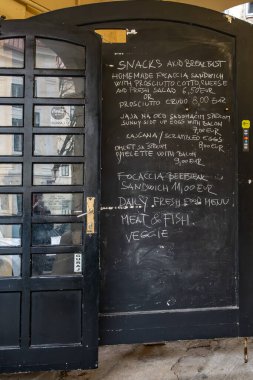 SNACKS AND BREAKFAST
HOMEMADE FOCACCIA SANDWICH
WITH PROSCIUTTO COTTO, CHEESE
AND FRESH SALAD 6,50 EUR
OR
PROSCIUTTO CRUDO 8,00 EUR
JAJA NA OKO SA
SUNNY SIDE UP EGGS WITH BACON
7,00 EUR
KAJGANA / SCRAMBLED EGGS
8,00 EUR
OMLET SA
OMELETTE WITH BACON
9,00 EUR
FOCACCIA
SANDWICH 11,00 EUR
DAILY FRESH MENU
MEAT & FISH
VEGGIE